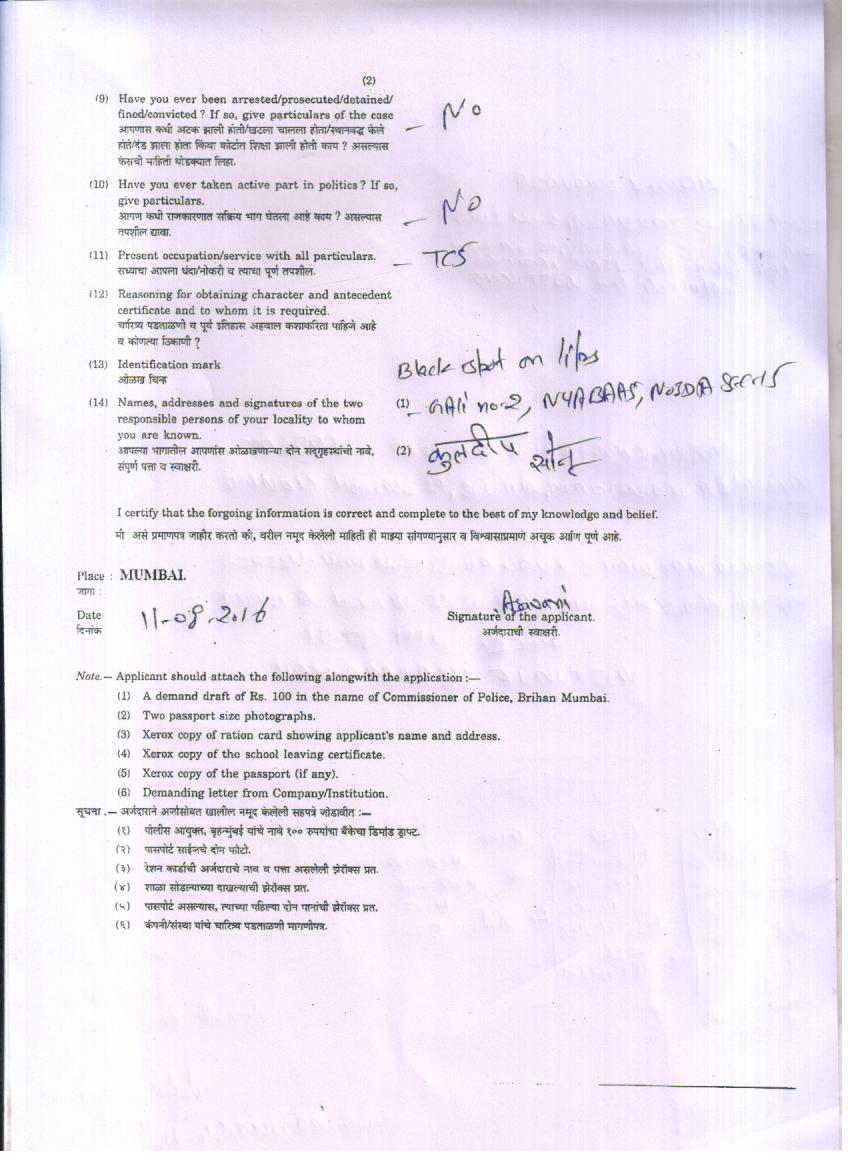 (2)
(9) Have you ever been arrested/prosecuted/detained/ 
fined/convicted ? If so, give particulars of the case
आपणास कधी अटक झाली होती/खटला चालला होता/स्थानबद्ध केले — No
होते/दंड झाला होता किंवा कोर्टात शिक्षा झाली होती काय ? असल्यास
केसची माहिती थोडक्यात लिहा.
(10) Have you ever taken active part in politics ? If so,
give particulars.
आपण कधी राजकारणात सक्रिय भाग घेतला आहे काय ? असल्यास — No
तपशील द्यावा.
(11) Present occupation/service with all particulars. — TCS
सध्याचा आपला धंदा/नोकरी व त्याचा पूर्ण तपशील.
(12) Reasoning for obtaining character and antecedent
certificate and to whom it is required.
चारित्र्य पडताळणी व पूर्व इतिहास अहवाल कशाकरिता पाहिजे आहे
व कोणत्या ठिकाणी ?
(13) Identification mark Black spot on lips
ओळख चिन्ह
(14) Names, addresses and signatures of the two (1) GAli no-2, NYABAAS, NOIDA
responsible persons of your locality to whom
you are known.
आपल्या भागातील आपणांस ओळखणाऱ्या दोन सद्गृहस्थांची नावे, (2) कुलदीप सोनू
संपूर्ण पत्ता व स्वाक्षरी.
I certify that the forgoing information is correct and complete to the best of my knowledge and belief.
मी असे प्रमाणपत्र जाहीर करतो की, वरील नमूद केलेली माहिती ही माझ्या सांगण्यानुसार व विश्वासाप्रमाणे अचूक आणि पूर्ण आहे.
Place : MUMBAI.
जागा :
Date 11-08-2016
दिनांक
Signature of the applicant.
अर्जदाराची स्वाक्षरी.
Note.— Applicant should attach the following alongwith the application :—
(1) A demand draft of Rs. 100 in the name of Commissioner of Police, Brihan Mumbai.
(2) Two passport size photographs.
(3) Xerox copy of ration card showing applicant's name and address.
(4) Xerox copy of the school leaving certificate.
(5) Xerox copy of the passport (if any).
(6) Demanding letter from Company/Institution.
सूचना .— अर्जदाराने अर्जासोबत खालील नमूद केलेली सहपत्रे जोडावीत :—
(१) पोलीस आयुक्त, बृहन्मुंबई यांचे नावे १०० रुपयांचा बँकेचा डिमांड ड्राफ्ट.
(२) पासपोर्ट साईजचे दोन फोटो.
(३) रेशन कार्डाची अर्जदाराचे नाव व पत्ता असलेली झेरॉक्स प्रत.
(४) शाळा सोडल्याच्या दाखल्याची झेरॉक्स प्रत.
(५) पासपोर्ट असल्यास, त्याच्या पहिल्या दोन पानांची झेरॉक्स प्रत.
(६) कंपनी/संस्था यांचे चारित्र्य पडताळणी मागणीपत्र.